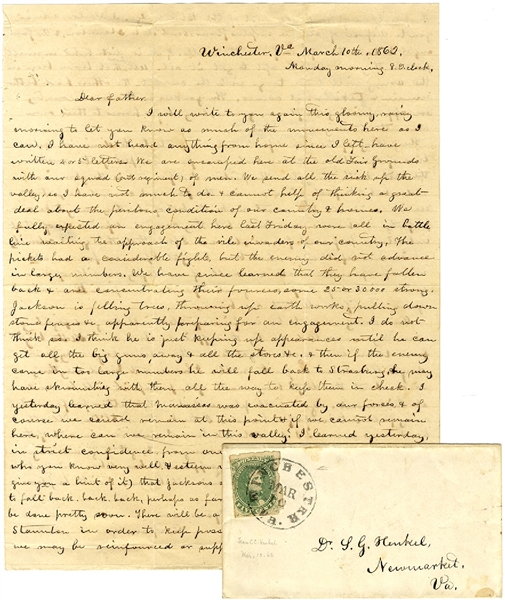 Winchester, Va March 10th, 1862
Monday morning 8 O'clock,
Dear Father
I will write to you again this gloomy, rainy
morning to let you know as much of the movements here as I
can, I have not heard anything from home since I left - have
written 4 or 5 letters. We are encamped here at the old Fair Grounds
with our squad (not regiment) of men. We send all the sick up the
valley, so I have not much to do & cannot help of thinking a great
deal about the perilous condition of our country & homes. We
fully expected an engagement here last Friday were all in battle
line waiting the approach of the vile invaders of our country. The
pickets had a considerable fight, but the enemy did not advance
in larger numbers. We have since learned that they have fallen
back & are concentrating their forces, some 25 or 30000 strong.
Jackson is felling trees, throwing up earth works, pulling down
stone fences &c apparently preparing for an engagement. I do not
think so. I think he is just keeping up appearances until he can
get all the big guns away & all the stores &c. & then if the enemy
come in too large numbers he will fall back to Strasburg, he may
have skirmishing with them all the way to keep them in check. I
yesterday learned that Manassas was evacuated by our forces & of
course we cannot remain at this point & if we cannot remain
here, where can we remain in this valley. I learned yesterday,
in strict confidence from one
who you know very well & esteem
give you a hint of it) that Jackson's
to fall back, back, back, perhaps as far
be done pretty soon. There will be a
Staunton in order to keep poss
we may be reinforced or supp
WINCHESTER
MAR
Dr. S. G. Henkel,
Newmarket,
Va.